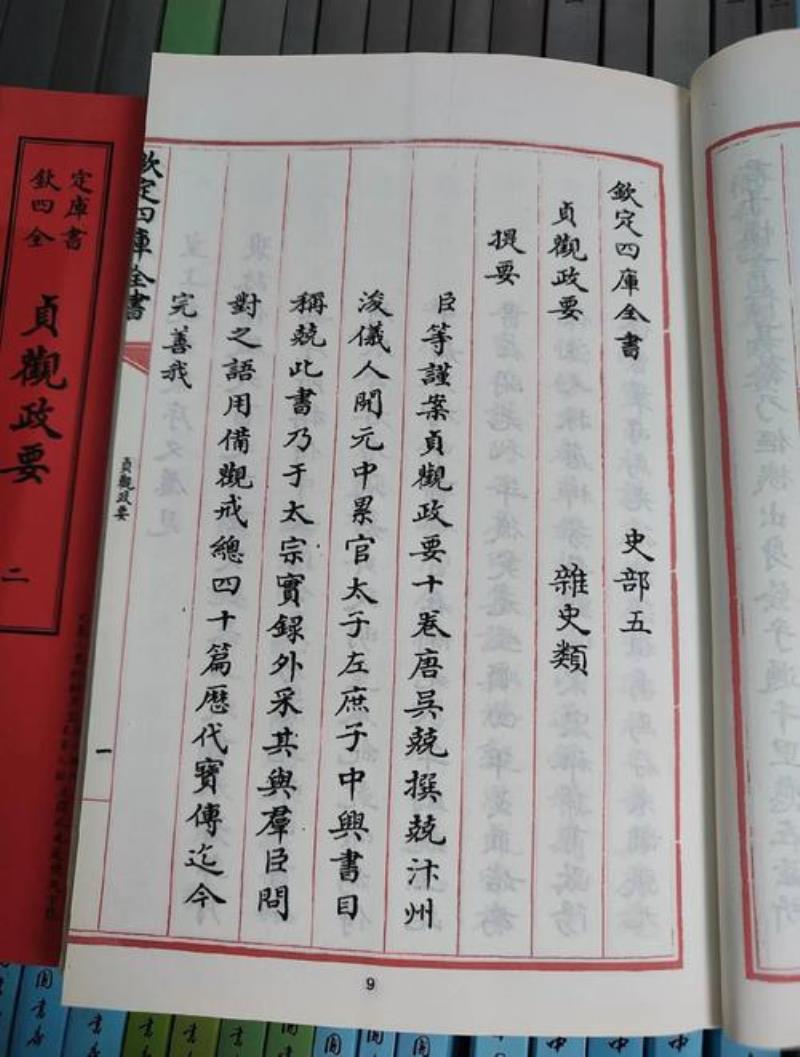 欽定四庫全書 史部五
貞觀政要 雜史類
提要
臣等謹案貞觀政要十卷唐吳兢撰兢汴州
浚儀人開元中累官太子左庶子中興書目
稱兢此書乃于太宗實録外采其與羣臣問
對之語用備觀戒總四十篇歷代寶傳迄今
完善我
欽定四庫全書
貞觀政要
一
9
欽定四庫全書
貞觀政要
二